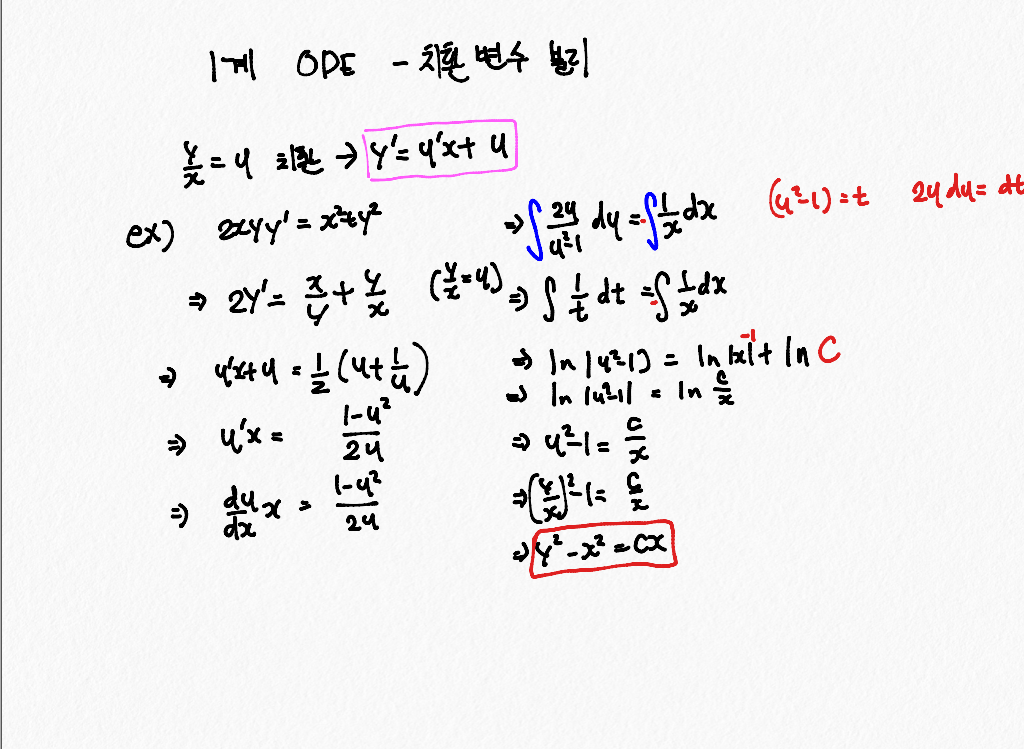 1계 ODE - 치환 변수 분리
y/x = u 치환 → y' = u'x + u
ex) 2xyy' = x²+y²
⇒ 2y' = x/y + y/x (y/x = u)
⇒ u'x+u = 1/2 (u+1/u)
⇒ u'x = (1-u²)/2u
⇒ du/dx x = (1-u²)/2u
⇒ ∫ 2u/(u²-1) du = -∫ 1/x dx (u²-1) = t 2u du = dt
⇒ ∫ 1/t dt = -∫ 1/x dx
⇒ ln |u²-1| = ln |x|⁻¹ + ln C
⇒ ln |u²-1| = ln c/x
⇒ u²-1 = c/x
⇒ (y/x)²-1 = c/x
⇒ y² - x² = cx